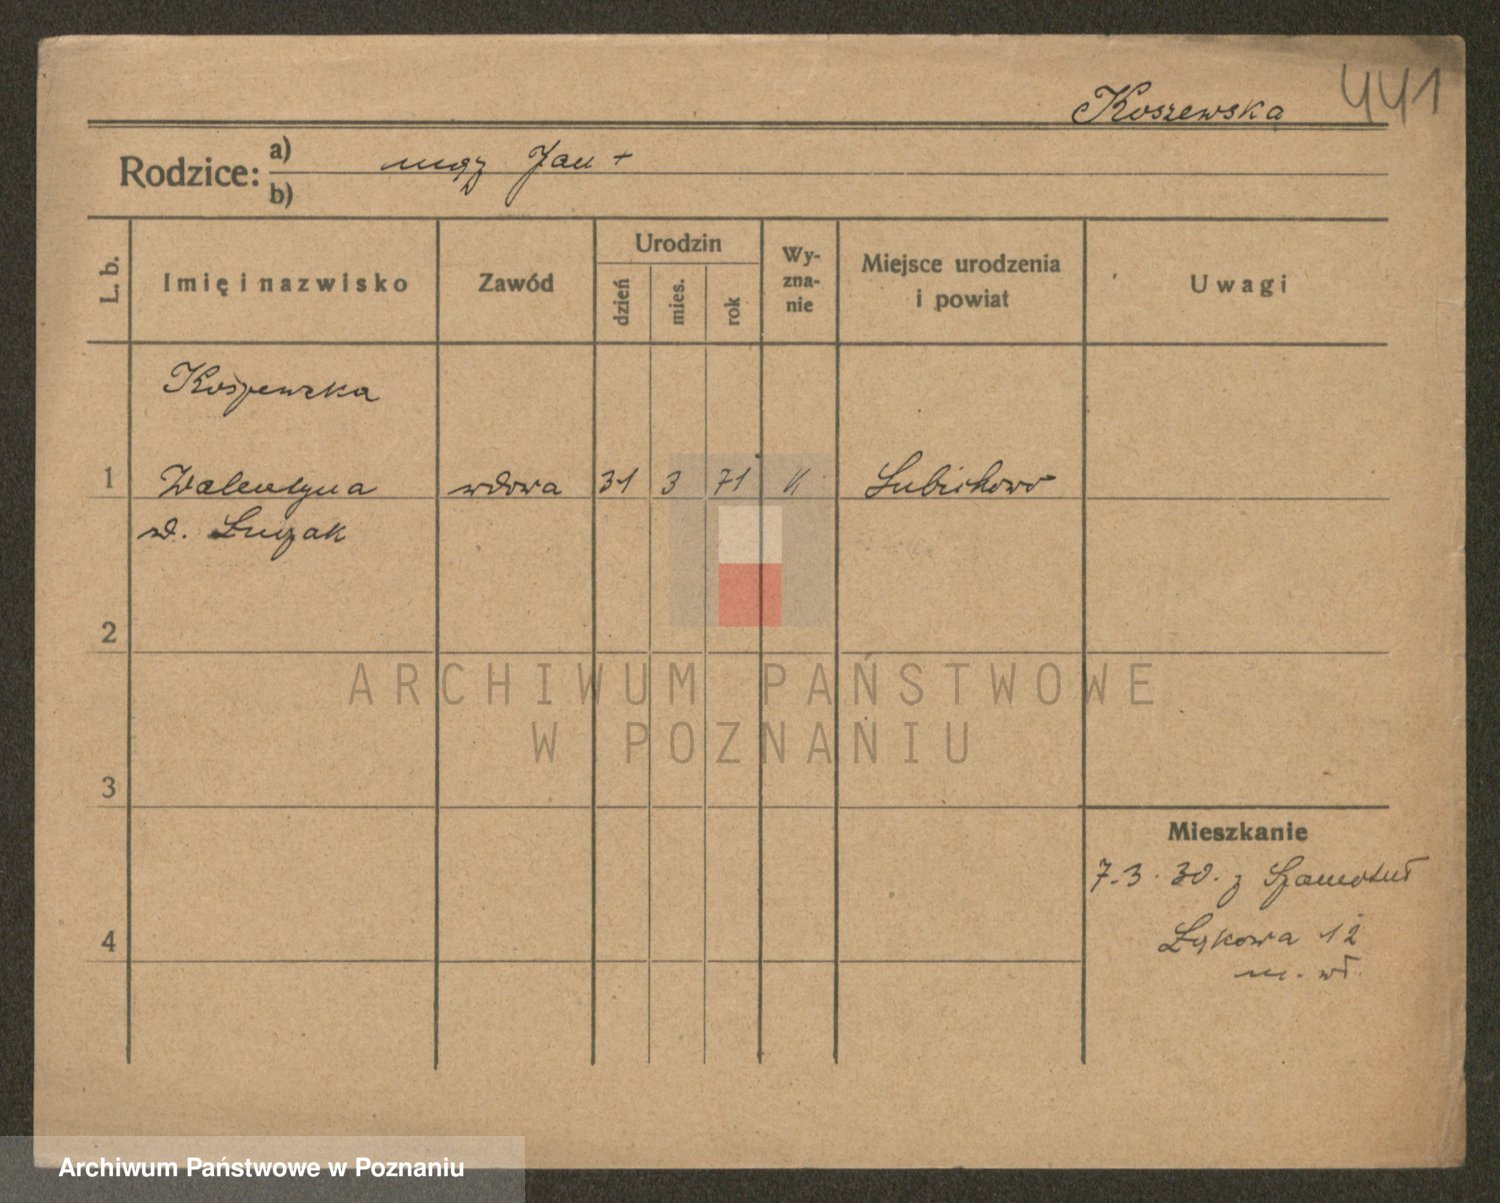 441
Koszewska
Rodzice: a) mąż Jan +
b)
L. b. Imię i nazwisko Zawód Urodzin dzień mies. rok Wy-zna-nie Miejsce urodzenia i powiat Uwagi
Koszewska
1 Walentyna wdowa 31 3 71 k Lubichowo
zd. Łuczak
2
3
4
Mieszkanie
7.3.30. z Szamotuł
Łąkowa 12
m. wł.
ARCHIWUM PAŃSTWOWE
W POZNANIU
Archiwum Państwowe w Poznaniu